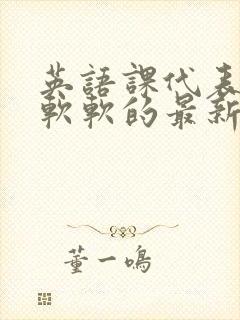 英語課代表
軟軟的最新
董一鳴